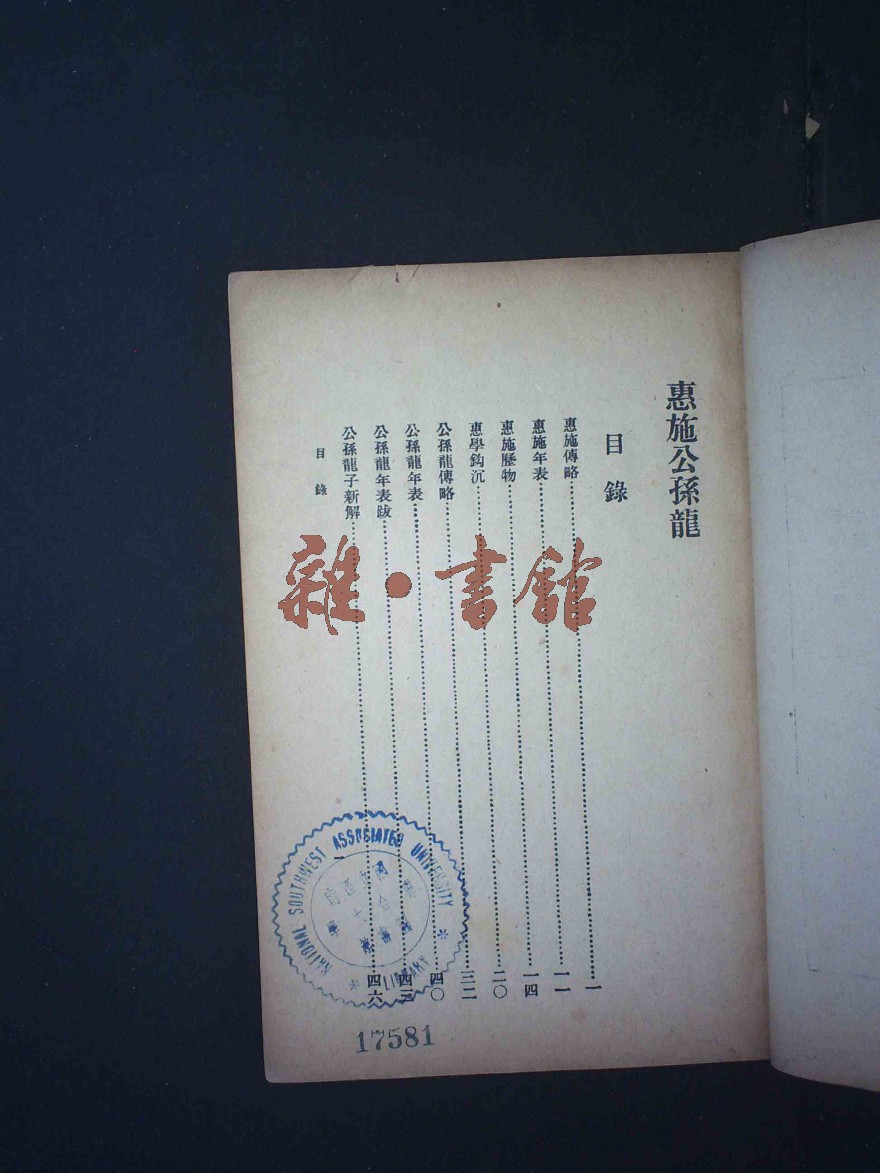 惠施公孫龍
目錄
惠施傳略……一
惠施年表……一一
惠施歷物……一四
惠學鈎沉……二〇
公孫龍傳略……三二
公孫龍年表……四〇
公孫龍年表跋……四三
公孫龍子新解……四六
目錄
雜·書館
NATIONAL SOUTHWEST ASSOCIATED UNIVERSITY
LIBRARY
17581